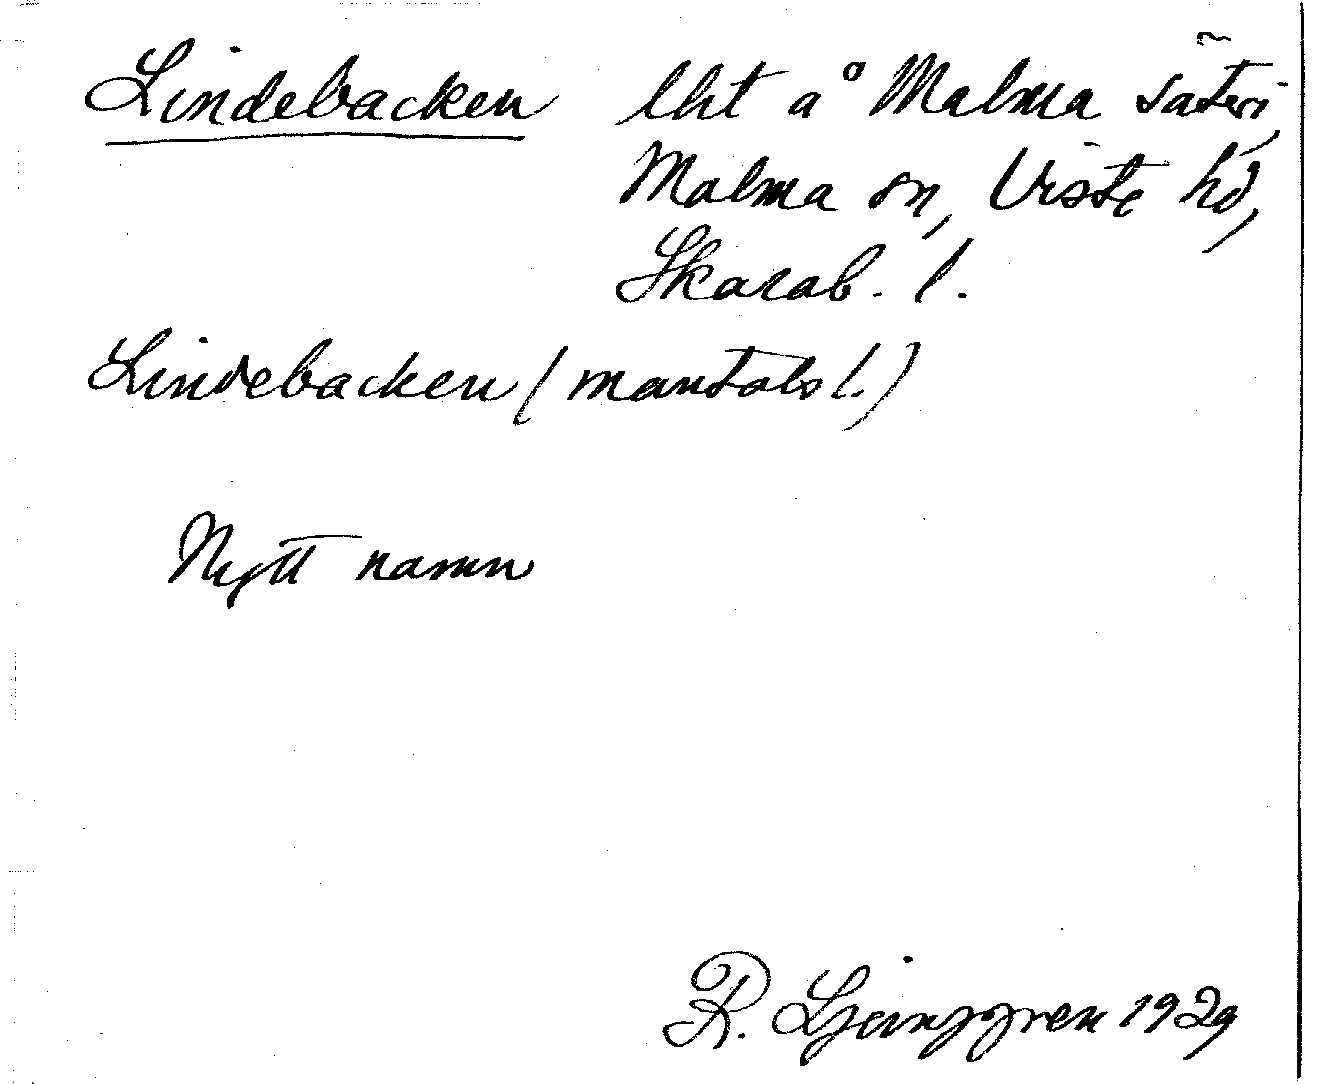 Lindebacken lht å Malma säteri,
Malma sn, Viste hd,
Skarab. l.
Lindebacken (mantals l.)
Nytt namn
R. Ljunggren 1929